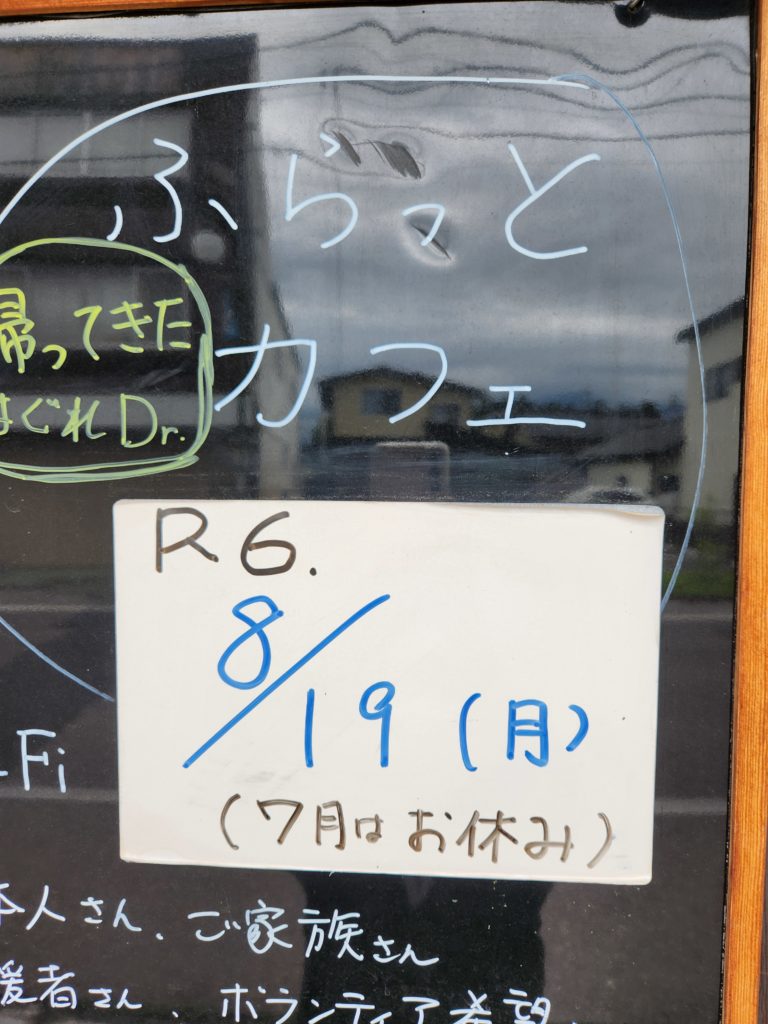 ふらっと
カフェ
帰ってきた
はぐれDr.
R6.
8/19(月)
(7月はお休み)
Fi
本人さん、ご家族さん
援者さん、ボランティア希望、